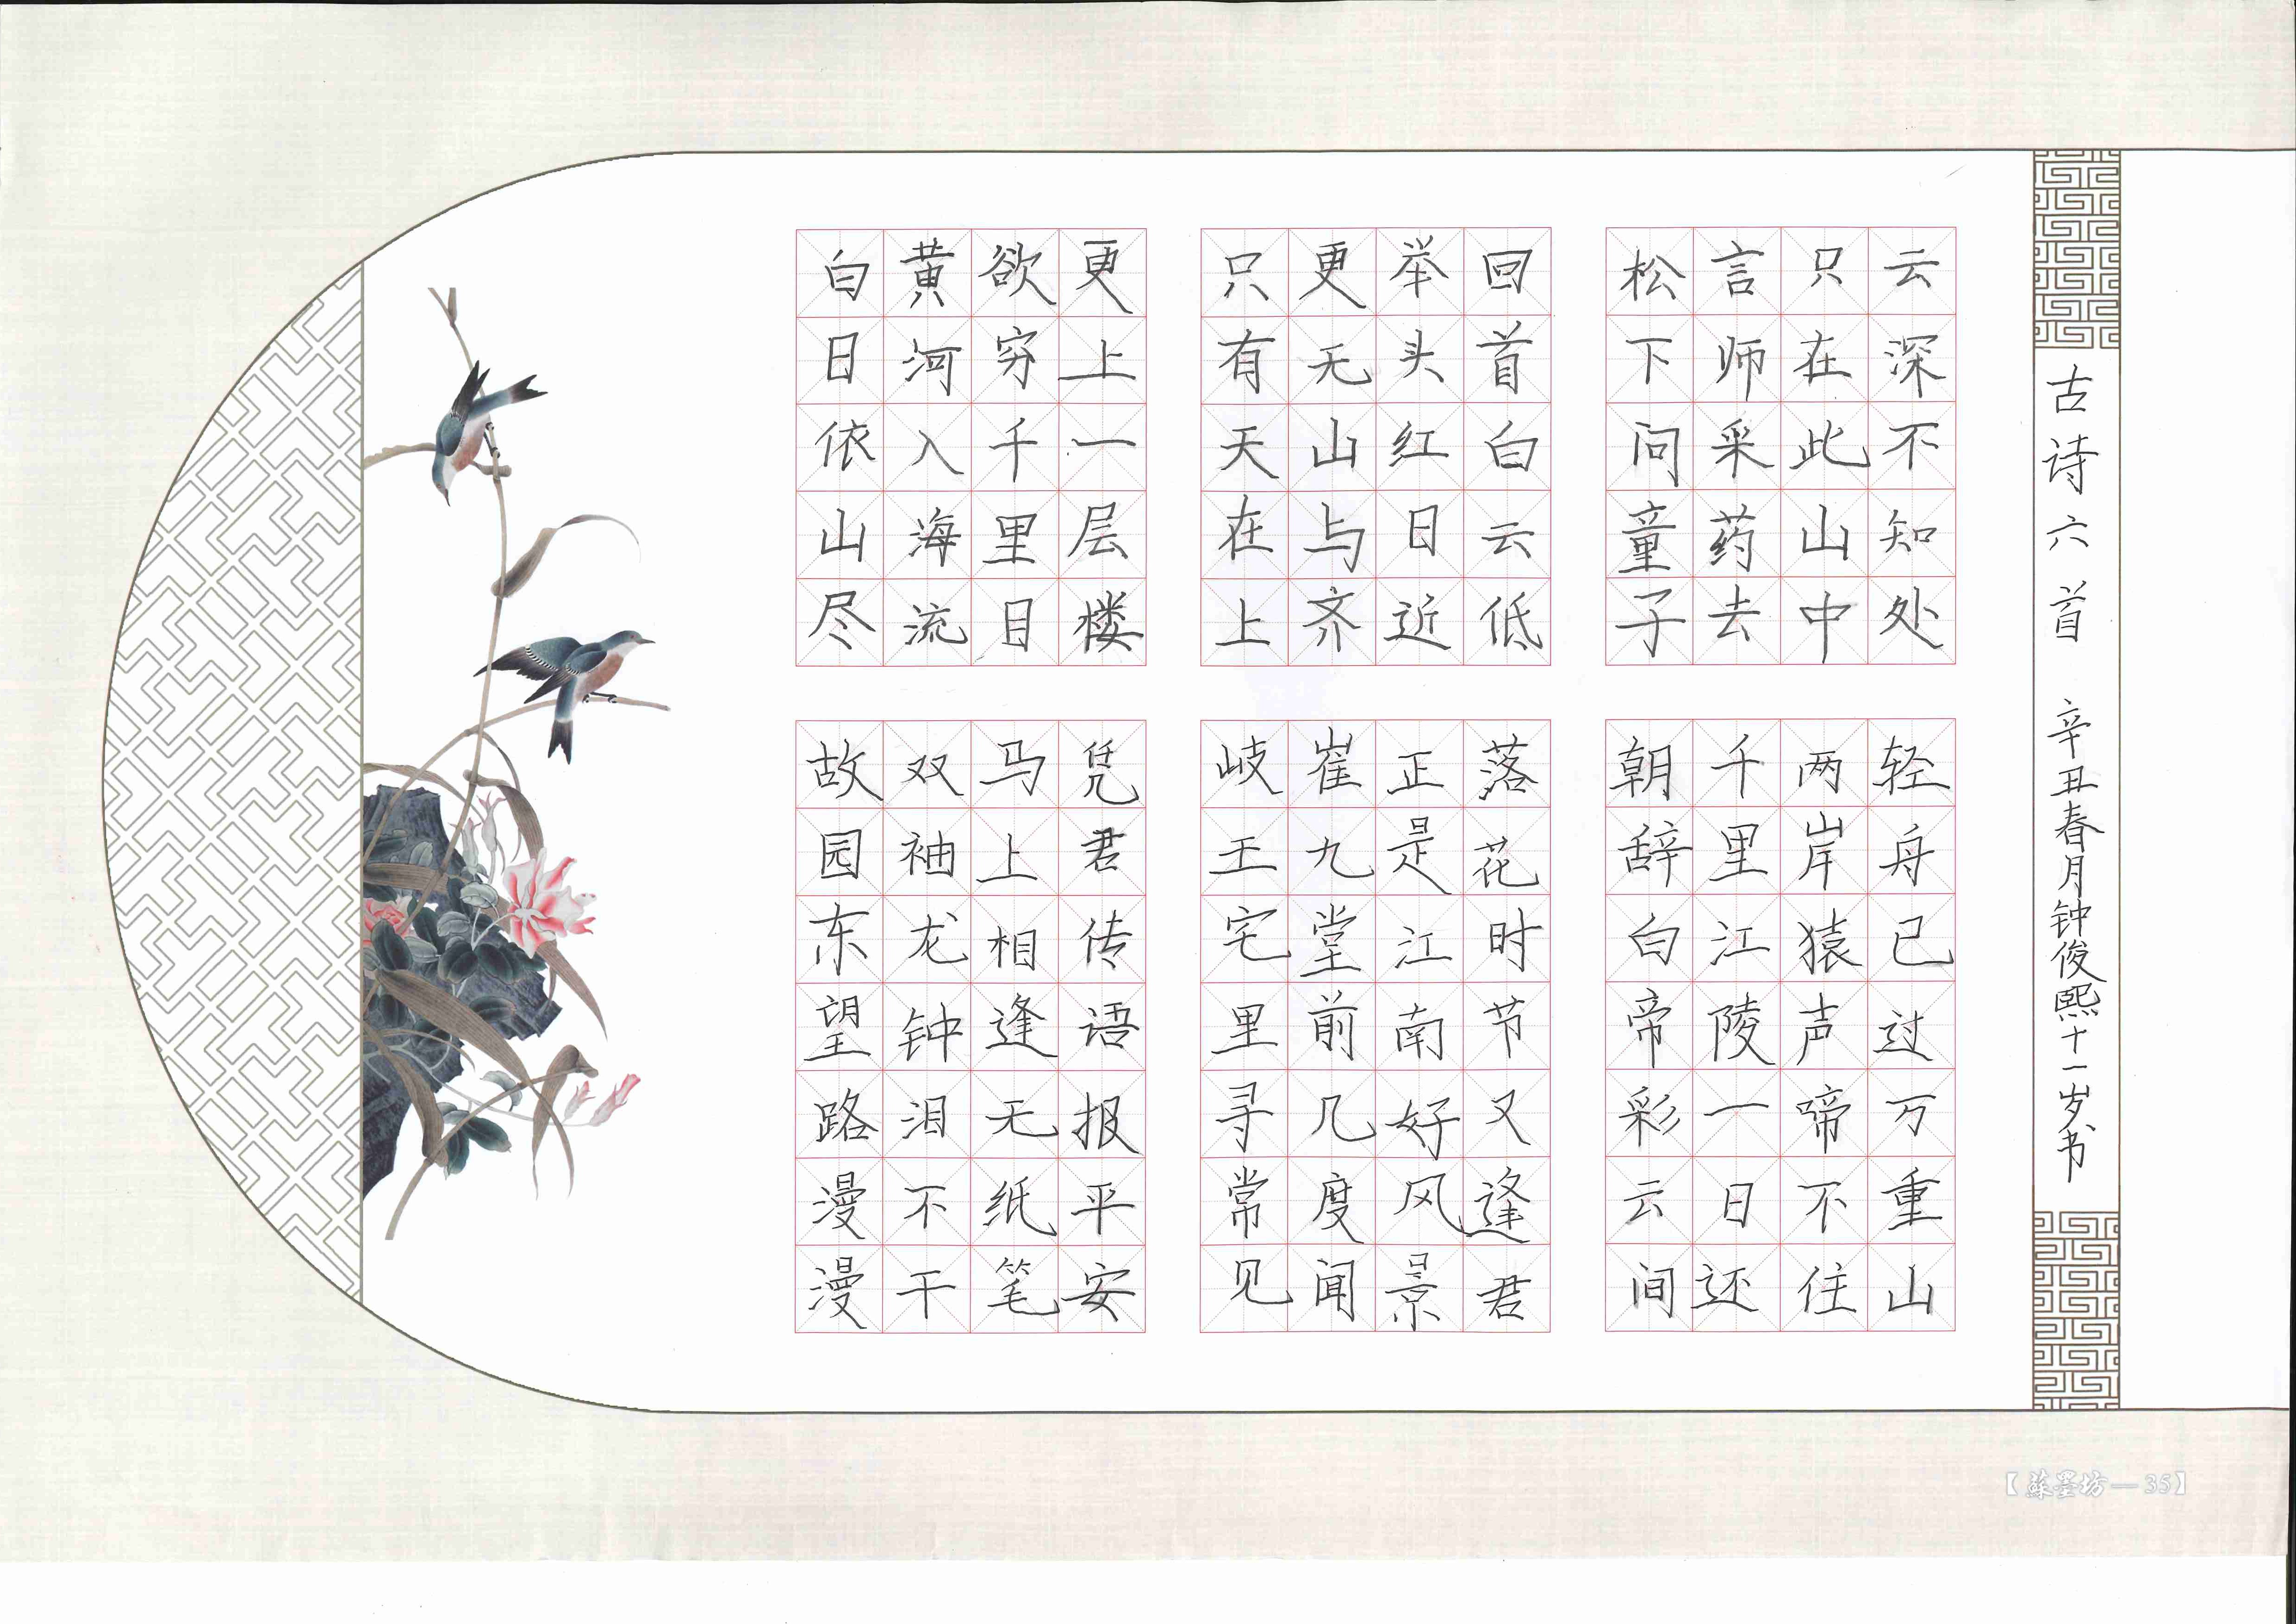 白日依山尽
黄河入海流
欲穷千里目
更上一层楼
只有天在上
更无山与齐
举头红日近
回首白云低
松下问童子
言师采药去
只在此山中
云深不知处
故园东望路漫漫
双袖龙钟泪不干
马上相逢无纸笔
凭君传语报平安
岐王宅里寻常见
崔九堂前几度闻
正是江南好风景
落花时节又逢君
朝辞白帝彩云间
千里江陵一日还
两岸猿声啼不住
轻舟已过万重山
古诗六首 辛丑春月钟俊熙十一岁书
【蘇墨坊—35】